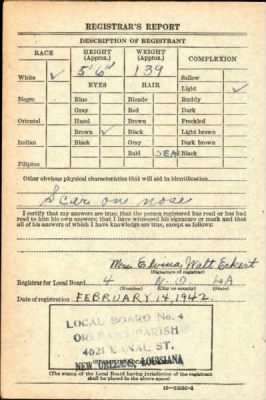 REGISTRAR'S REPORT
DESCRIPTION OF REGISTRANT
RACE HEIGHT (Approx.) WEIGHT (Approx.) COMPLEXION
5' 6" 139
White ✓ Sallow
EYES HAIR Light ✓
Negro Blue Blonde Ruddy
Gray Red Dark
Oriental Hazel Brown Freckled
Brown ✓ Black Light brown
Indian Black Gray Dark brown
Bald Black
Filipino
Other obvious physical characteristics that will aid in identification
Scar on nose
I certify that my answers are true; that the person registered has read or has had read to him his own answers; that I have witnessed his signature or mark and that all of his answers of which I have knowledge are true, except as follows:
Mrs. Elvina Walt Eckert
(Signature of registrar)
Registrar for Local Board 4 N.O. LA
(Number) (City or county) (State)
Date of registration FEBRUARY 14, 1942
LOCAL BOARD No. 4
ORLEANS PARISH
4621 CANAL ST.
NEW ORLEANS, LOUISIANA
(The stamp of the Local Board having jurisdiction of the registrant shall be placed in the above space.)